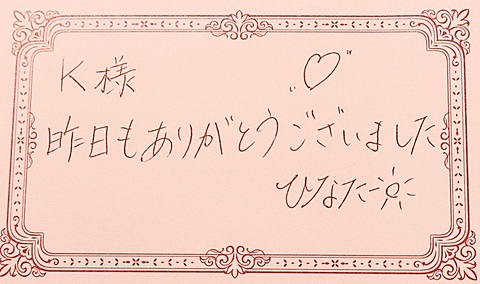 K様
昨日もありがとうございました
ひなた